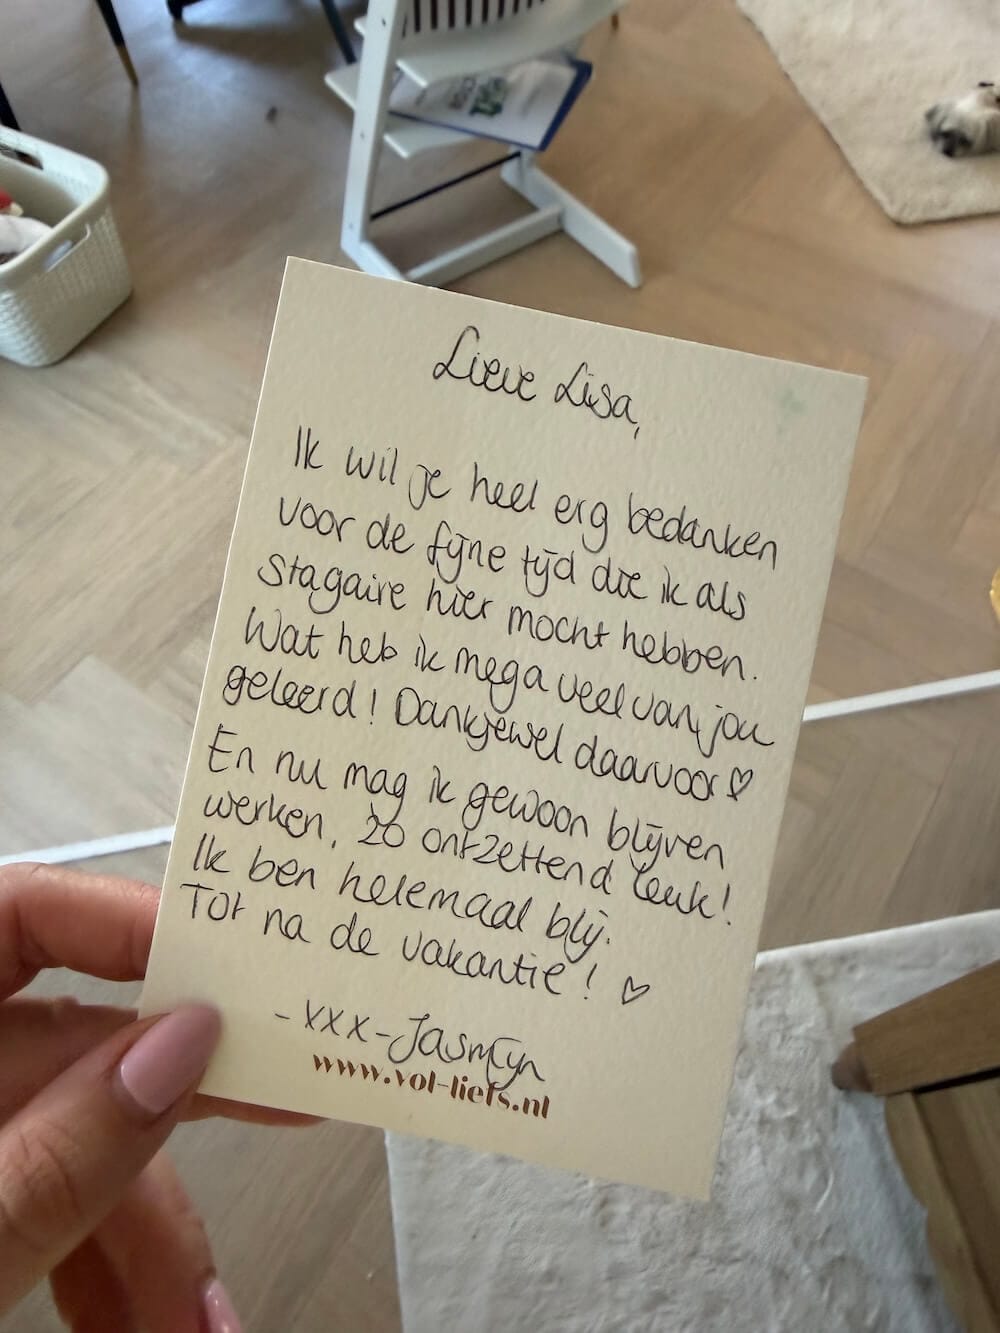 Lieve Lisa,
Ik wil je heel erg bedanken
voor de fijne tijd die ik als
stagaire hier mocht hebben.
Wat heb ik mega veel van jou
geleerd! Dankjewel daarvoor ♡
En nu mag ik gewoon blijven
werken, zo ontzettend leuk!
Ik ben helemaal blij.
Tot na de vakantie! ♡
- xxx - Jasmijn
www.vol-liefs.nl